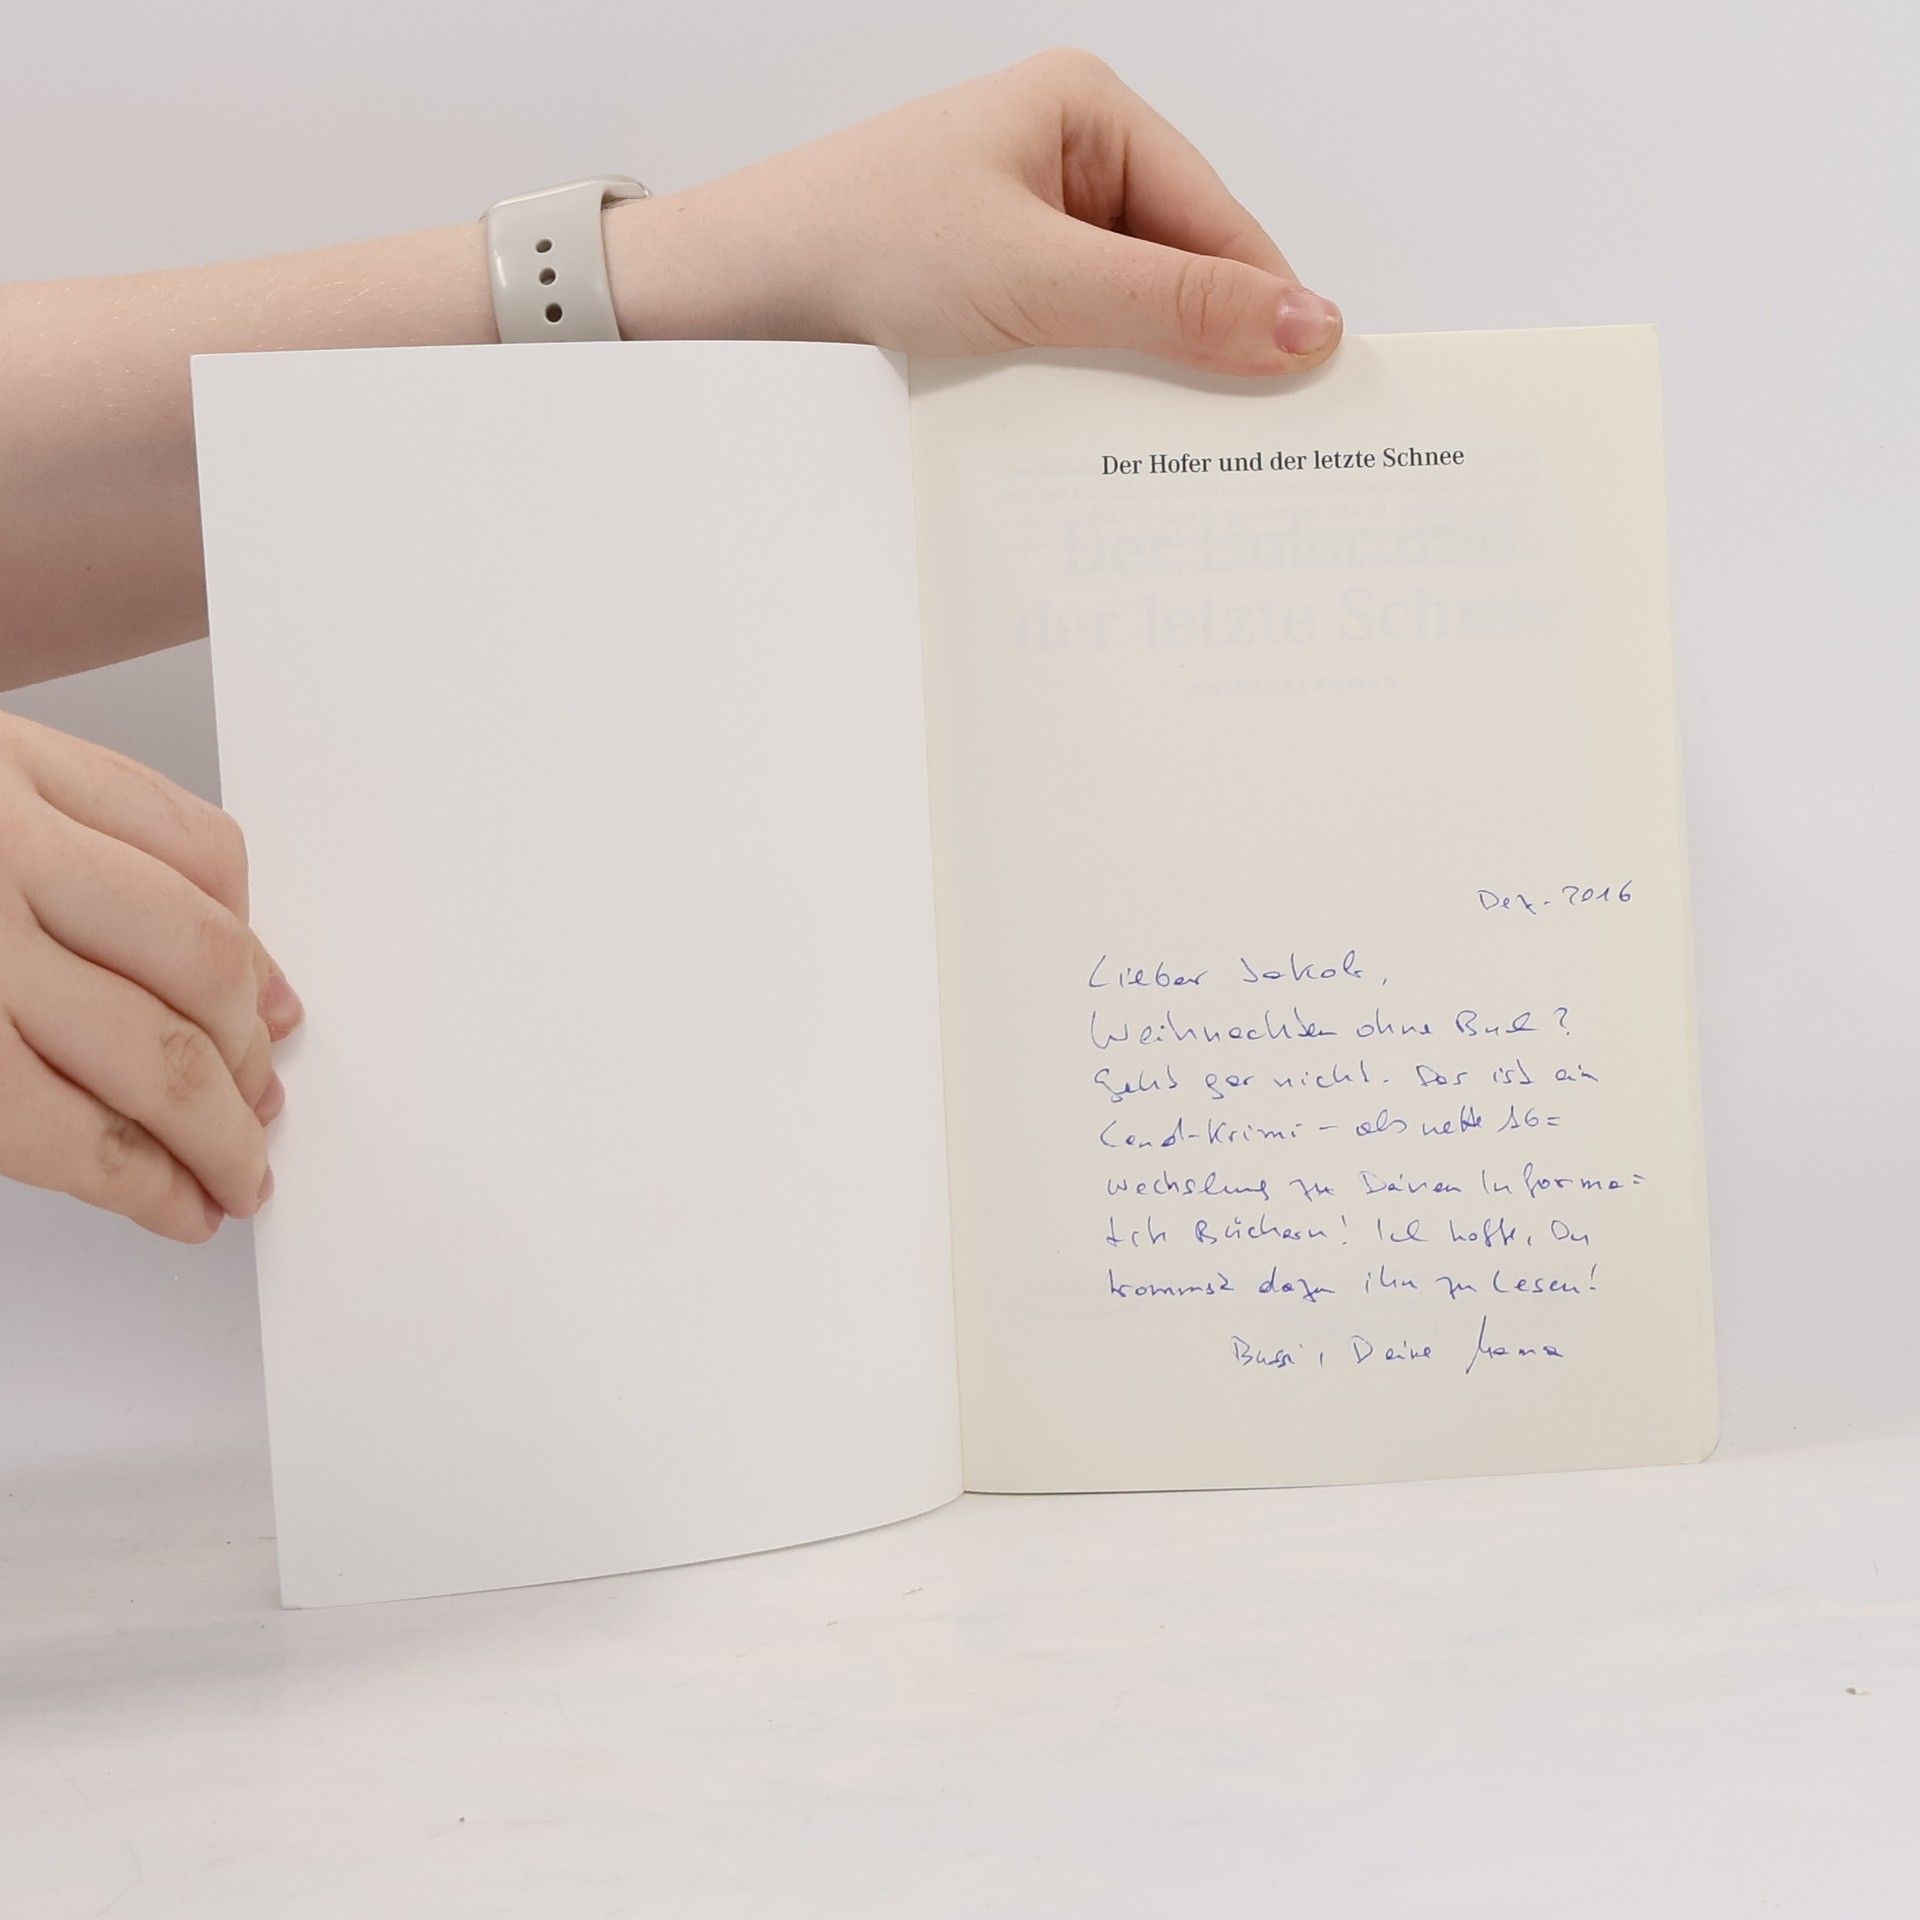 Der Hofer und der letzte Schnee
Der Hofer und
der letzte Schnee
Dez. 2016
Lieber Jakob,
Weihnachten ohne Buch?
Geht gar nicht. Das ist ein
Land-Krimi – als nette Ab=
wechslung zu Deinen Informa=
tik Büchern! Ich hoffe, Du
kommst dazu ihn zu lesen!
Bussi, Deine Mama